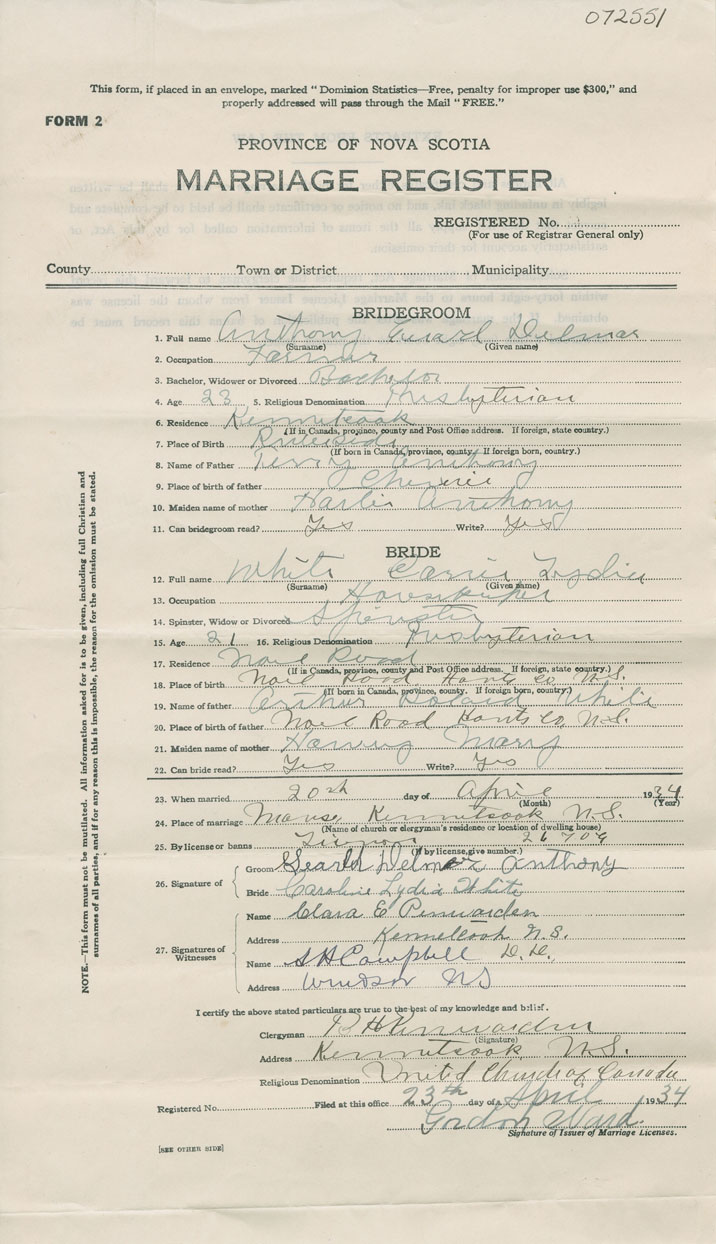 072551
This form, if placed in an envelope, marked "Dominion Statistics—Free, penalty for improper use $300," and
properly addressed will pass through the Mail "FREE."
FORM 2
PROVINCE OF NOVA SCOTIA
MARRIAGE REGISTER
REGISTERED No.
(For use of Registrar General only)
County Town or District Municipality
BRIDEGROOM
1. Full name Anthony Delmar
(Surname) (Given name)
2. Occupation Farmer
3. Bachelor, Widower or Divorced Bachelor
4. Age 23 5. Religious Denomination Presbyterian
6. Residence Kennetcook
(If in Canada, province, county and Post Office address. If foreign, state country.)
7. Place of Birth Riverside
(If born in Canada, province, county. If foreign born, country.)
8. Name of Father Anthony
9. Place of birth of father Cheverie
10. Maiden name of mother Anthony
11. Can bridegroom read? Yes Write? Yes
BRIDE
12. Full name White Carrie Lydia
(Surname) (Given name)
13. Occupation Housekeeper
14. Spinster, Widow or Divorced Spinster
15. Age 21 16. Religious Denomination Presbyterian
17. Residence Noel Road
(If in Canada, province, county and Post Office address. If foreign, state country.)
18. Place of birth Noel Road Hants Co N.S.
(If born in Canada, province, county. If foreign born, country.)
19. Name of father Arthur White
20. Place of birth of father Noel Road Hants Co, N.S.
21. Maiden name of mother Mary
22. Can bride read? Yes Write? Yes
23. When married 20th day of April 1934
(Month) (Year)
24. Place of marriage Manse, Kennetcook N.S.
(Name of church or clergyman's residence or location of dwelling house)
25. By license or banns 26709
(If by license, give number.)
26. Signature of
Groom Delmar Anthony
Bride Caroline Lydia White
27. Signatures of Witnesses
Name Clara E Penwarden
Address Kennetcook N.S.
Name S H Campbell D.D.
Address Windsor NS
I certify the above stated particulars are true to the best of my knowledge and belief.
Clergyman Penwarden
(Signature)
Address Kennetcook N.S.
Religious Denomination United Church of Canada
Registered No. Filed at this office 23th day of April 1934
Gordon Ward
Signature of Issuer of Marriage Licenses.
[SEE OTHER SIDE]
NOTE.—This form must not be mutilated. All information asked for is to be given, including full Christian and
surnames of all parties, and if for any reason this is impossible, the reason for the omission must be stated.